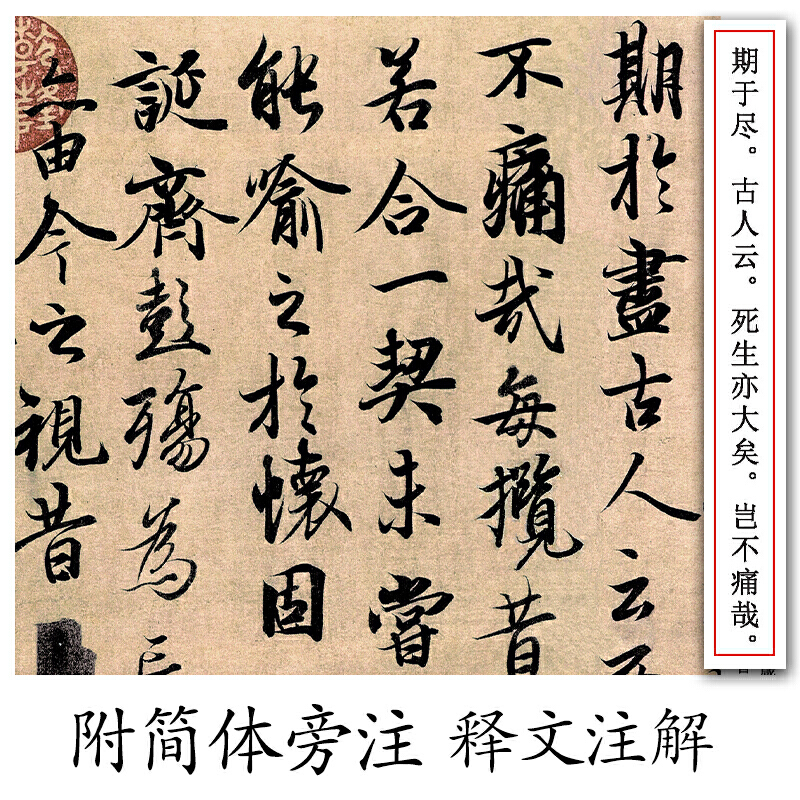 期于尽。古人云。死生亦大矣。岂不痛哉。
期於盡古人云
不痛哉每攬昔
若合一契未嘗
能喻之於懷固
誕齊彭殤為
亦由今之視昔
附简体旁注 释文注解